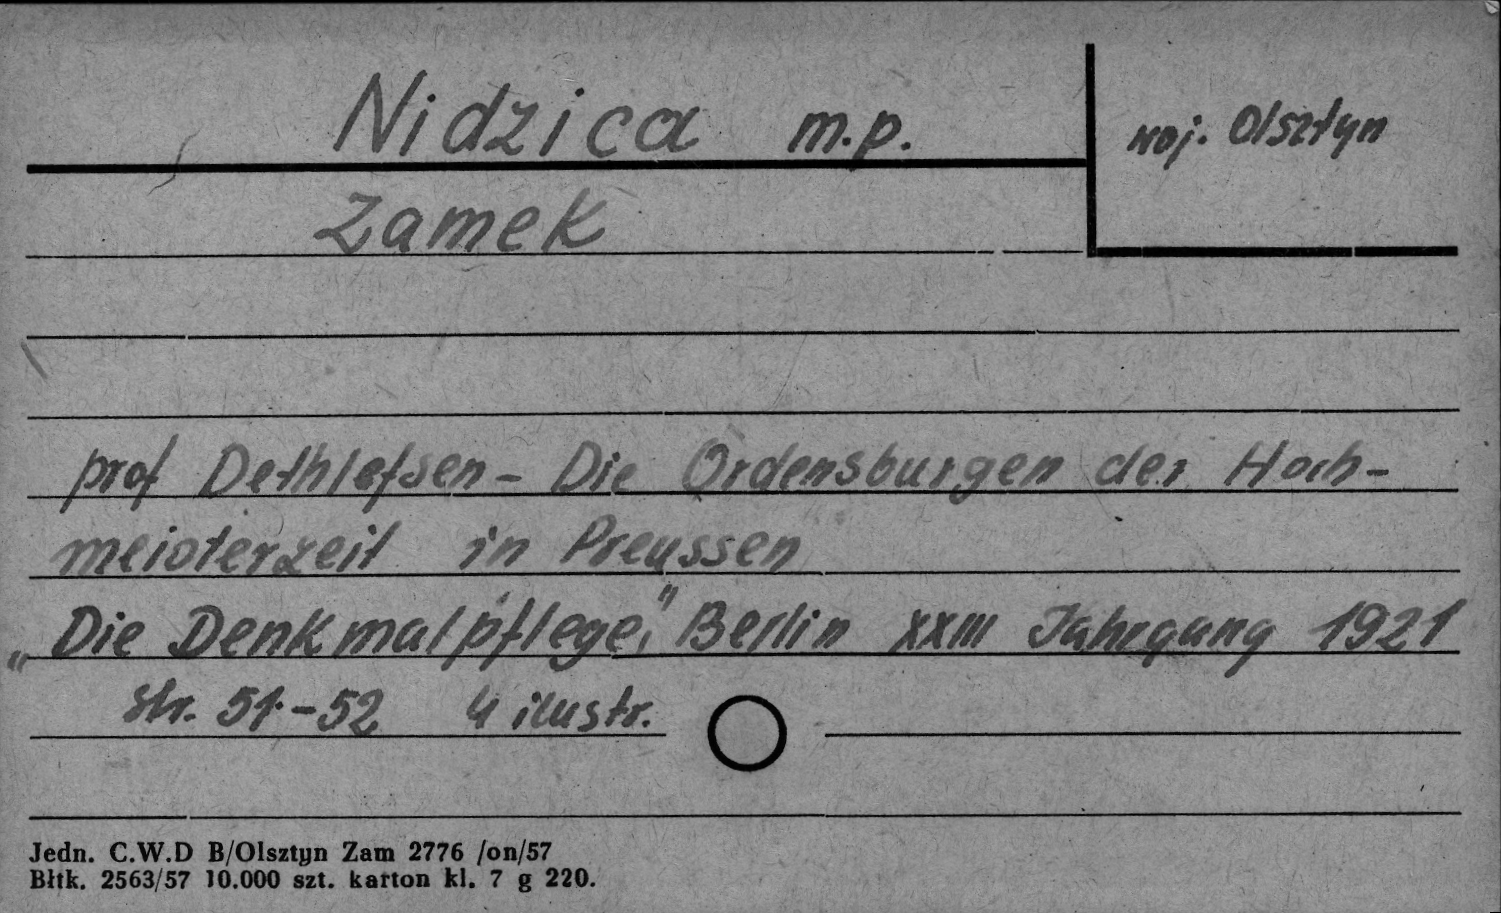 Nidzica m.p.
woj. Olsztyn
Zamek
prof Dethlefsen - Die Ordensburgen der Hoch-
meisterzeit in Preussen
„Die Denkmalpflege," Berlin XXIII Jahrgang 1921
str. 51-52 4 ilustr.
Jedn. C.W.D B/Olsztyn Zam 2776 /on/57
Błtk. 2563/57 10.000 szt. karton kl. 7 g 220.